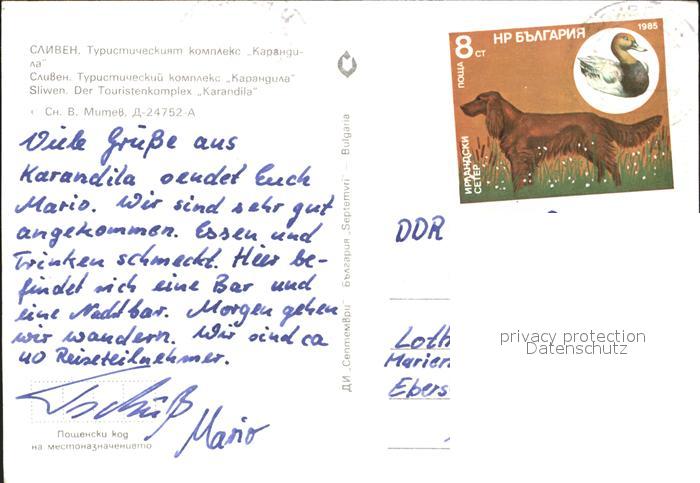 СЛИВЕН. Туристическият комплекс „Каранди-
ла"
Сливен. Туристический комплекс „Карандила"
Sliwen. Der Touristenkomplex „Karandila"
Сн. В. Митев, Д-24752-А
Viele Grüße aus
Karandila sendet Euch
Mario. Wir sind sehr gut
angekommen. Essen und
Trinken schmeckt. Hier be-
findet sich eine Bar und
eine Nachtbar. Morgen gehen
wir wandern. Wir sind ca
40 Reiseteilnehmer.
Tschüß
Mario
Пощенски код
на местоназначението
ДИ „Септември" България „Septemvri" — Bulgaria
НР БЪЛГАРИЯ
1985
8 СТ
ПОЩА
ИРЛАНДСКИ
СЕТЕР
DDR
Loth
Marien
Ebers
privacy protection
Datenschutz